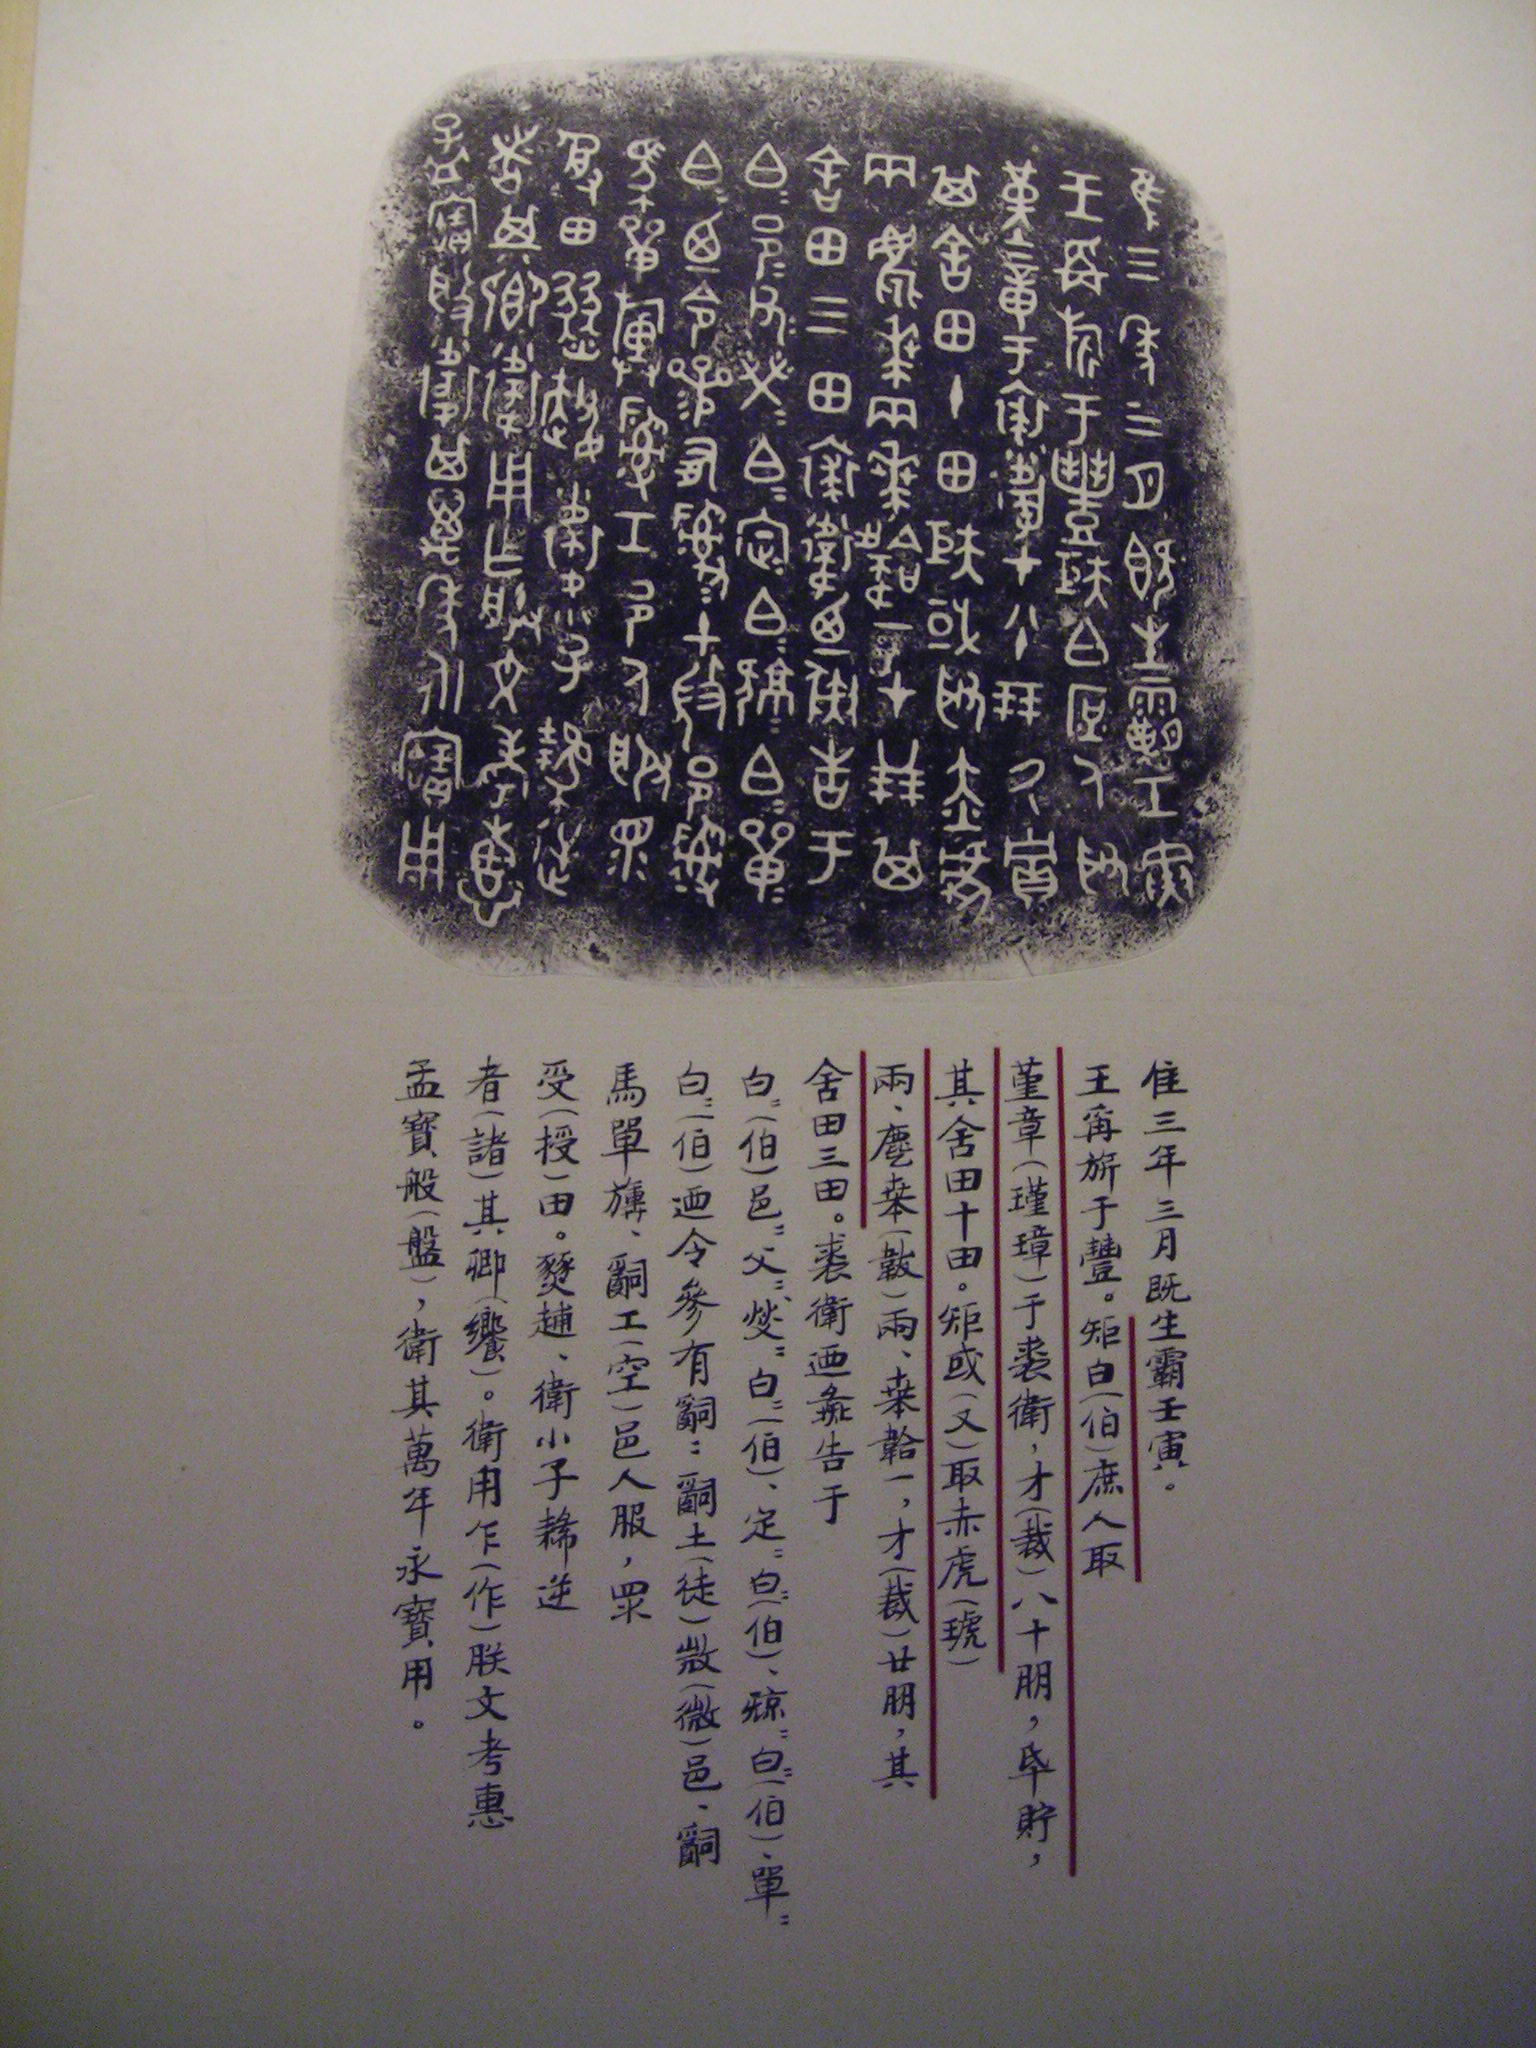 隹三年三月既生霸壬寅。
王爯旂于豐。矩白(伯)庶人取
堇章(瑾璋)于裘衛，才(裁)八十朋，氒貯，
其舍田十田。矩或(又)取赤虎(琥)
兩、麀𠦪(韍)兩、𠦪韐一，才(裁)廿朋，其
舍田三田。裘衛迺彘告于
白=(伯)邑=父=、燓=白=(伯)、定=白=(伯)、𤸫=白=(伯)、單=
白=(伯)迺令參有嗣=嗣土(徒)𢼸(微)邑、嗣
馬單旟、嗣工(空)邑人服，眔
受(授)田。燹趞、衛小子𩛥逆
者(諸)其卿(饗)。衛用乍(作)朕文考惠
孟寶般(盤)，衛其萬年永寶用。